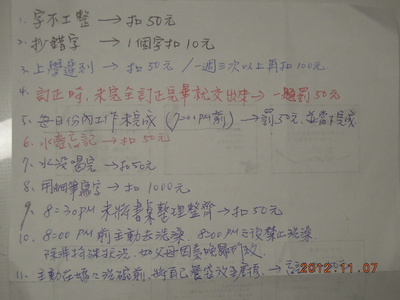 1. 字不工整 → 扣 50元
2. 抄錯字 → 1個字扣10元
3. 上學遲到 → 扣 50元 / 一週三次以上再扣100元
4. 訂正時, 未完全訂正完畢就交出來 → 一題罰50元
5. 每日份內工作未完成 (7:00 PM前) → 罰50元, 並當場完成
6. 水壺忘記 → 扣 50元
7. 水沒喝完 → 扣50元
8. 用鋼筆寫字 → 扣 1000元
9. 8:30 PM 未將書桌整理整齊 → 扣 50元
10. 8:00 PM 前主動去洗澡, 8:00 PM 之後禁止洗澡
除非特殊狀況, 如父母因素晚歸
11. 主動在 前, 將自己
2012.11.07